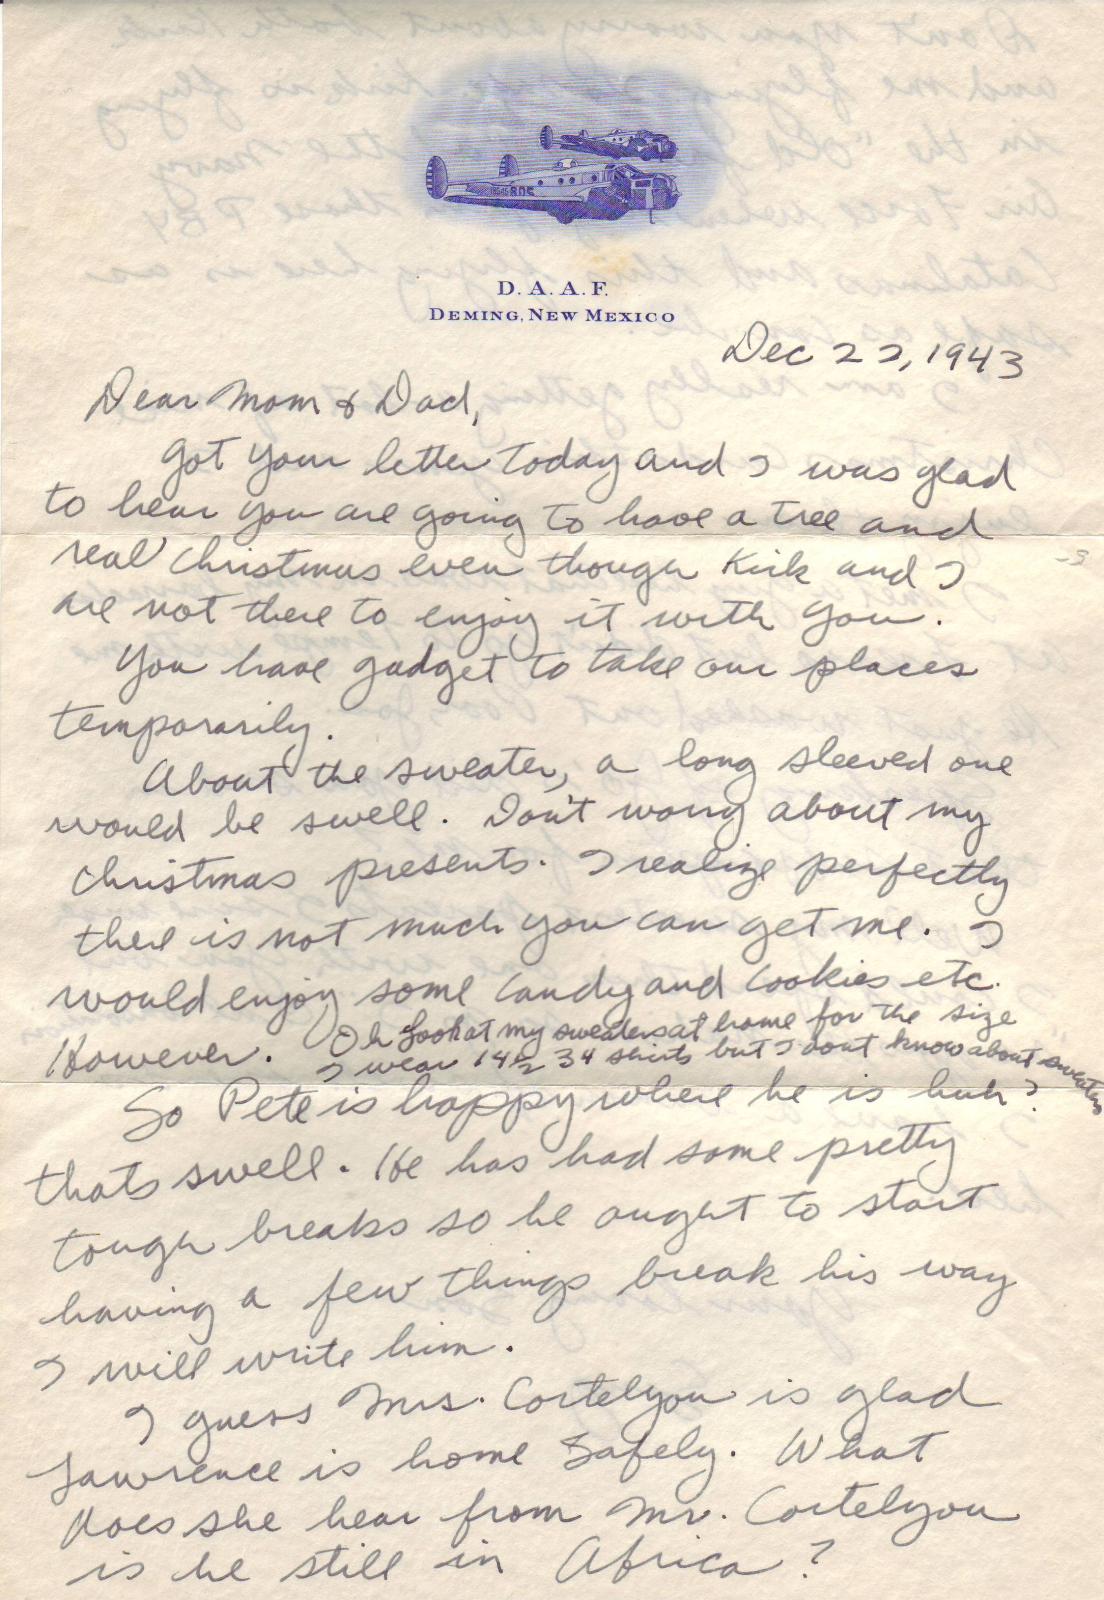 D. A. A. F.
DEMING, NEW MEXICO
Dec 22, 1943
Dear Mom & Dad,
Got your letter today and I was glad
to hear you are going to have a tree and
real Christmas even though Kirk and I
are not there to enjoy it with you.
You have gadget to take our places
temporarily.
About the sweater, a long sleeved one
would be swell. Don't worry about my
Christmas presents. I realize perfectly
there is not much you can get me. I
would enjoy some candy and cookies etc.
However. Oh Look at my sweaters at home for the size
I wear 14½ 34 shirts but I dont know about sweaters
So Pete is happy where he is huh?
thats swell. He has had some pretty
tough breaks so he ought to start
having a few things break his way
I will write him.
I guess Mrs. Cortelyou is glad
Lawrence is home safely. What
does she hear from Mr. Cortelyou
is he still in Africa?